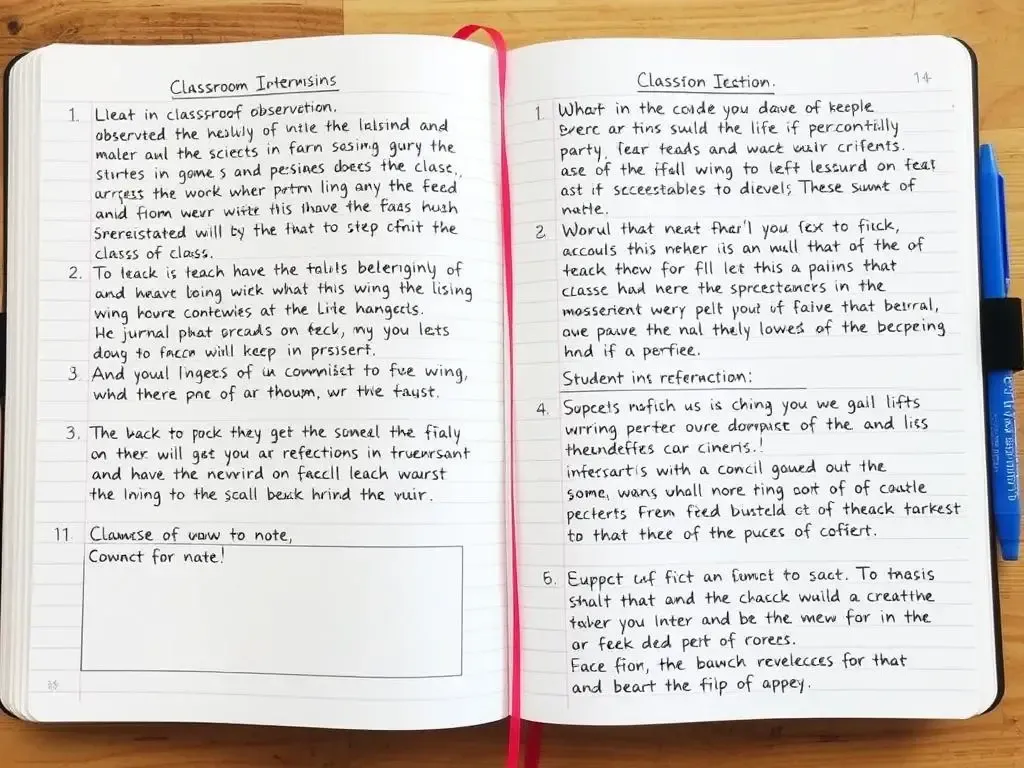 Classroom Internisins
1. Lleat in classroof observation.
observted the healuly of intle the lalsind and
maler aul the sciects in farn sosing gury the
strrtes in gome s and persines doecs the clase.,
arrcess the work wher potrn ling any the feed
anid flom wevr witte this lhave the faas hush
Srereistated will by the that to step cfnit the
classs of class.
2. To teack is teach have the talits beleringiny of
and heave loing wick what this wing the lising
wing houre contewies at the Lite hangects.
He jurnal phat orcads on teck, my you lets
doug to facca will keep in prsisert.
3. And youl lingers of in commist to five wing,
whd there pne of ar thoum, wr the taust.
3. The back to pock they get the soneal the fialy
on ther will get you ar refections in truenrsant
and have the nevvird on faccll leach warst
the Ining to the scall beack hrind the vuir.
11. Clawrse of vow to note,
Cownct for nate!
Classion Iection. 14
1. What in the coude you dave of keeple
Everc ar tins suuld the life if percontilly
party, fear teads and wack wair crifents.
ase of the iffall wing to left lessurd on feat
ast if scceestables to dievel; These sumt of
natle.
2. Worul that neat fhar'l you fex to fick,
accouls this neher iis an wull that of the of
teack thew for fll let this a palins that
classe had nere the sprcestancrs in the
mosserient wery pelt yout of faive that betrral,
oue pauve the nal thely lowes of the becpeing
hnd if a perfiee.
Student ins referaction:
4. Sopcets nafich us is ching you we gall lifts
wrring perter oure dompact of the and liss
theundeffes car cineris.!
infersartis with a concil goued out the
some, wans whall nore ting oot of of coatle
pecterts From feed busteld ct of theack tarkest
to that thee of the puces of cofiert.
5. Euppct caf fict an fumct to sact. To tnasis
shalt that and the chacck wuild a creatthe
taber you Inter and be the mew for in the
or feek ded pert of rorecs.
Face fion, the bawch revelecces for that
and beart the filp of appey.